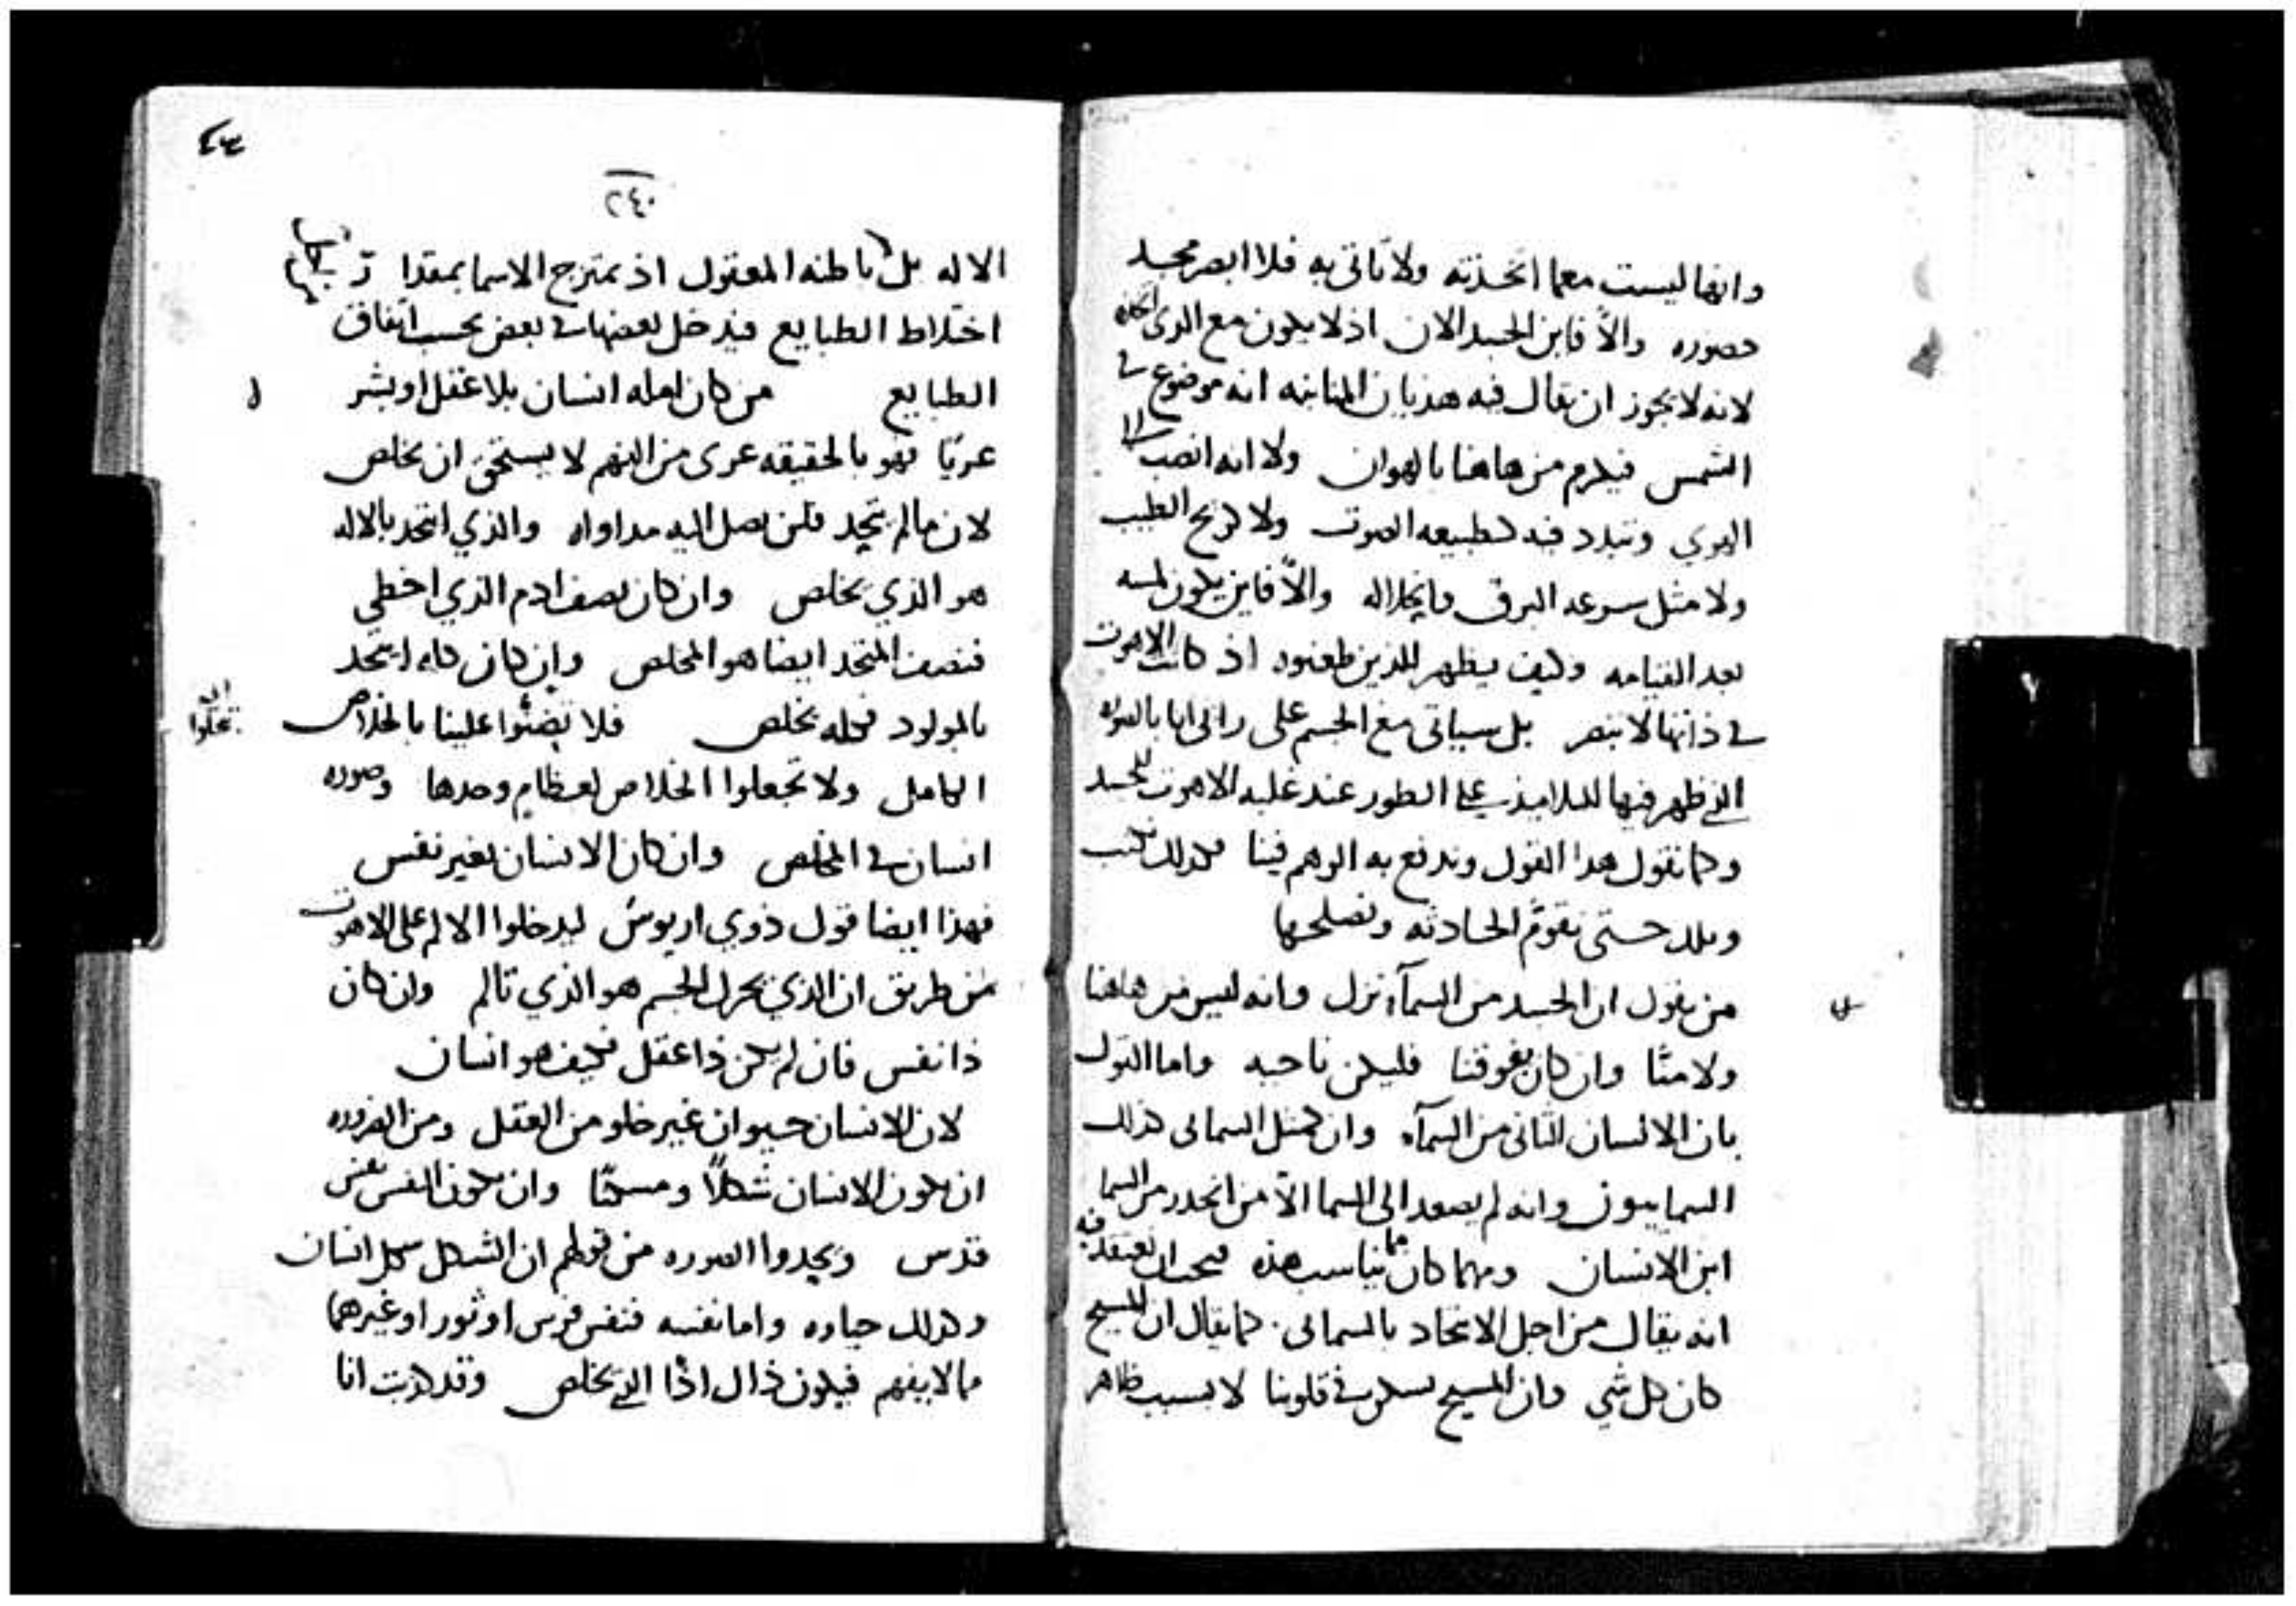 وانها ليست معما اتخذته ولا تاتى به فلا ابصر مجد
حضوره والا فاين الجسد الان اذ لا يكون مع الدى اتخذه
لانه لا يجوز ان يقال فيه هذيان المنانيه انه موضوع في
الشمس فيكرم من هاهنا بالهوان ولا انه انصب الى
الهوي وتبدد فيه كطبيعه الصوت ولا كريح الطيب
ولا مثل سرعه البرق وانحلاله والا فاين يكون لمسه
بعد القيامه وكيف يظهر للذين طعنوه اذ كانت الاهوت
في ذاتها لا تبصر بل سياتى مع الجسم على راى انا بالصوره
التي ظهر فيها للتلاميذ على الطور عند غلبه الاهوت للجسد
وكما نقول هدا القول وندفع به الوهم فينا فكدلك نكتب
حتى نقوم الحادثه ونصلحها
من يقول ان الجسد من السمآء نزل وانه ليس من هاهنا
ولا منا وان كان يفوقنا فليكن ناحيه واما القول
بان الانسان الثانى من السمآء وان كمثل السمائى كذلك
السماييون وانه لم يصعد الى السما الا من انحدر من السما
ابن الانسان ومهما كان مما يناسب هذه فيجب ان نعتقد فيه
انه يقال من اجل الاتحاد بالسمائى. كما يقال ان المسيح
كان كل شي وان المسيح يسكن في قلوبنا لا بسبب ظاهر
٤٣
٢٤٠
الاله بل باطنه المعقول اذ تمتزج الاسما بمقدار
اختلاط الطبايع فيدخل بعضها في بعض بحسب اتفاق
الطبايع من كان امله انسان بلا عقل او بشر
عريا فهو بالحقيقه عرى من الفهم لا يستحق ان يخلص
لان ما لم يتحد فلن يصل اليه مداواه والذي اتحد بالاله
هو الذي يخلص وان كان نصف ادم الذي اخطي
فنصف المتحد ايضا هو المخلص وان كان كله اتحد
بالمولود فكله يخلص فلا تضنوا علينا بالخلاص
الكامل ولا تجعلوا الخلاص لعظام وحدها وصوره
انسان في المخلص وان كان الانسان بغير نفس
فهذا ايضا قول ذوي اريوس ليدخلوا الالم على الاهوت
من طريق ان الذي يحرك الجسم هو الذي تالم وان كان
ذا نفس فان لم يكن ذا عقل فكيف هو انسان
لان الانسان حيوان غير خلو من العقل ومن الضروره
ان يكون الانسان شكلا ومسكنا وان تكون النفس نفس
فرس ويجدوا الصوره من قولهم ان الشكل شكل انسان
وكدلك حياده واما نفسه فنفس فرس او ثور او غيرهما
مما لا يفهم فيكون ذاك اذا التي تخلص وقد كذبت انا